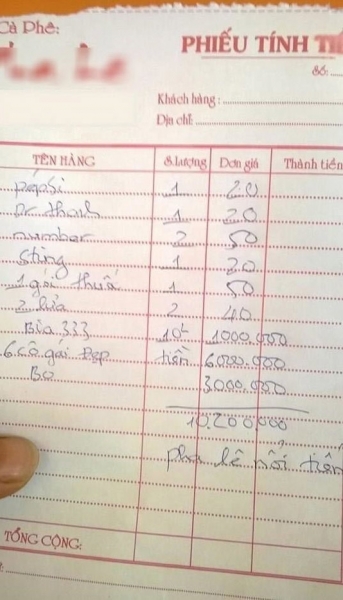 Cà Phê:
PHIẾU TÍNH TIỀ
Số:
Khách hàng:
Địa chỉ:
TÊN HÀNG S.lượng Đơn giá Thành tiền
pepsi 1 20
Dr thanh 1 20
number 2 50
Sting 1 20
1 gói thuố 1 50
2 lửa 2 40
Bia 333 10t 1000.000
6 cô gái Đẹp tiền 6.000.000
Bo 3000.000
10.200.000
pha lê nôi tiến
TỔNG CỘNG: